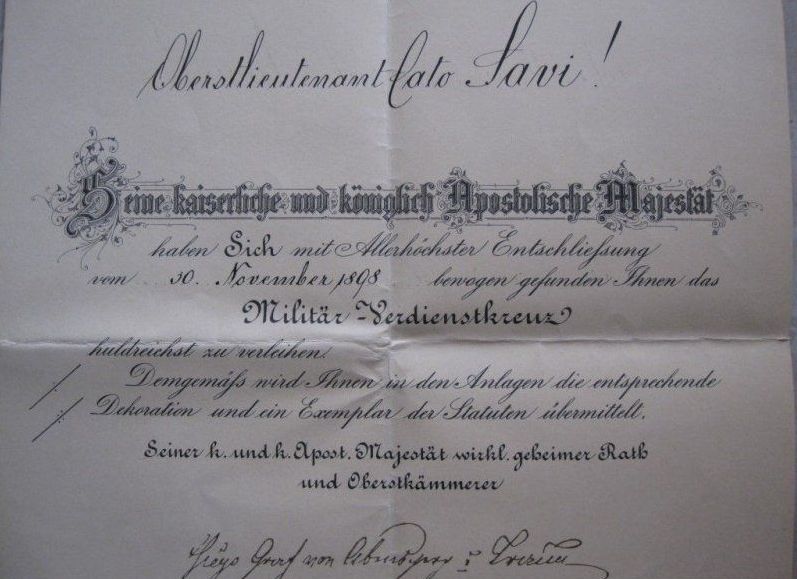 Oberstlieutenant Cato Savi!
Seine kaiserliche und königlich Apostolische Majestät
haben Sich mit Allerhöchster Entschließung
vom 30. November 1898 bewogen gefunden Ihnen das
Militär-Verdienstkreuz
huldreichst zu verleihen.
Demgemäss wird Ihnen in den Anlagen die entsprechende
Dekoration und ein Exemplar der Statuten übermittelt.
Seiner k. und k. Apost. Majestät wirkl. geheimer Rath
und Oberstkämmerer
Graf von